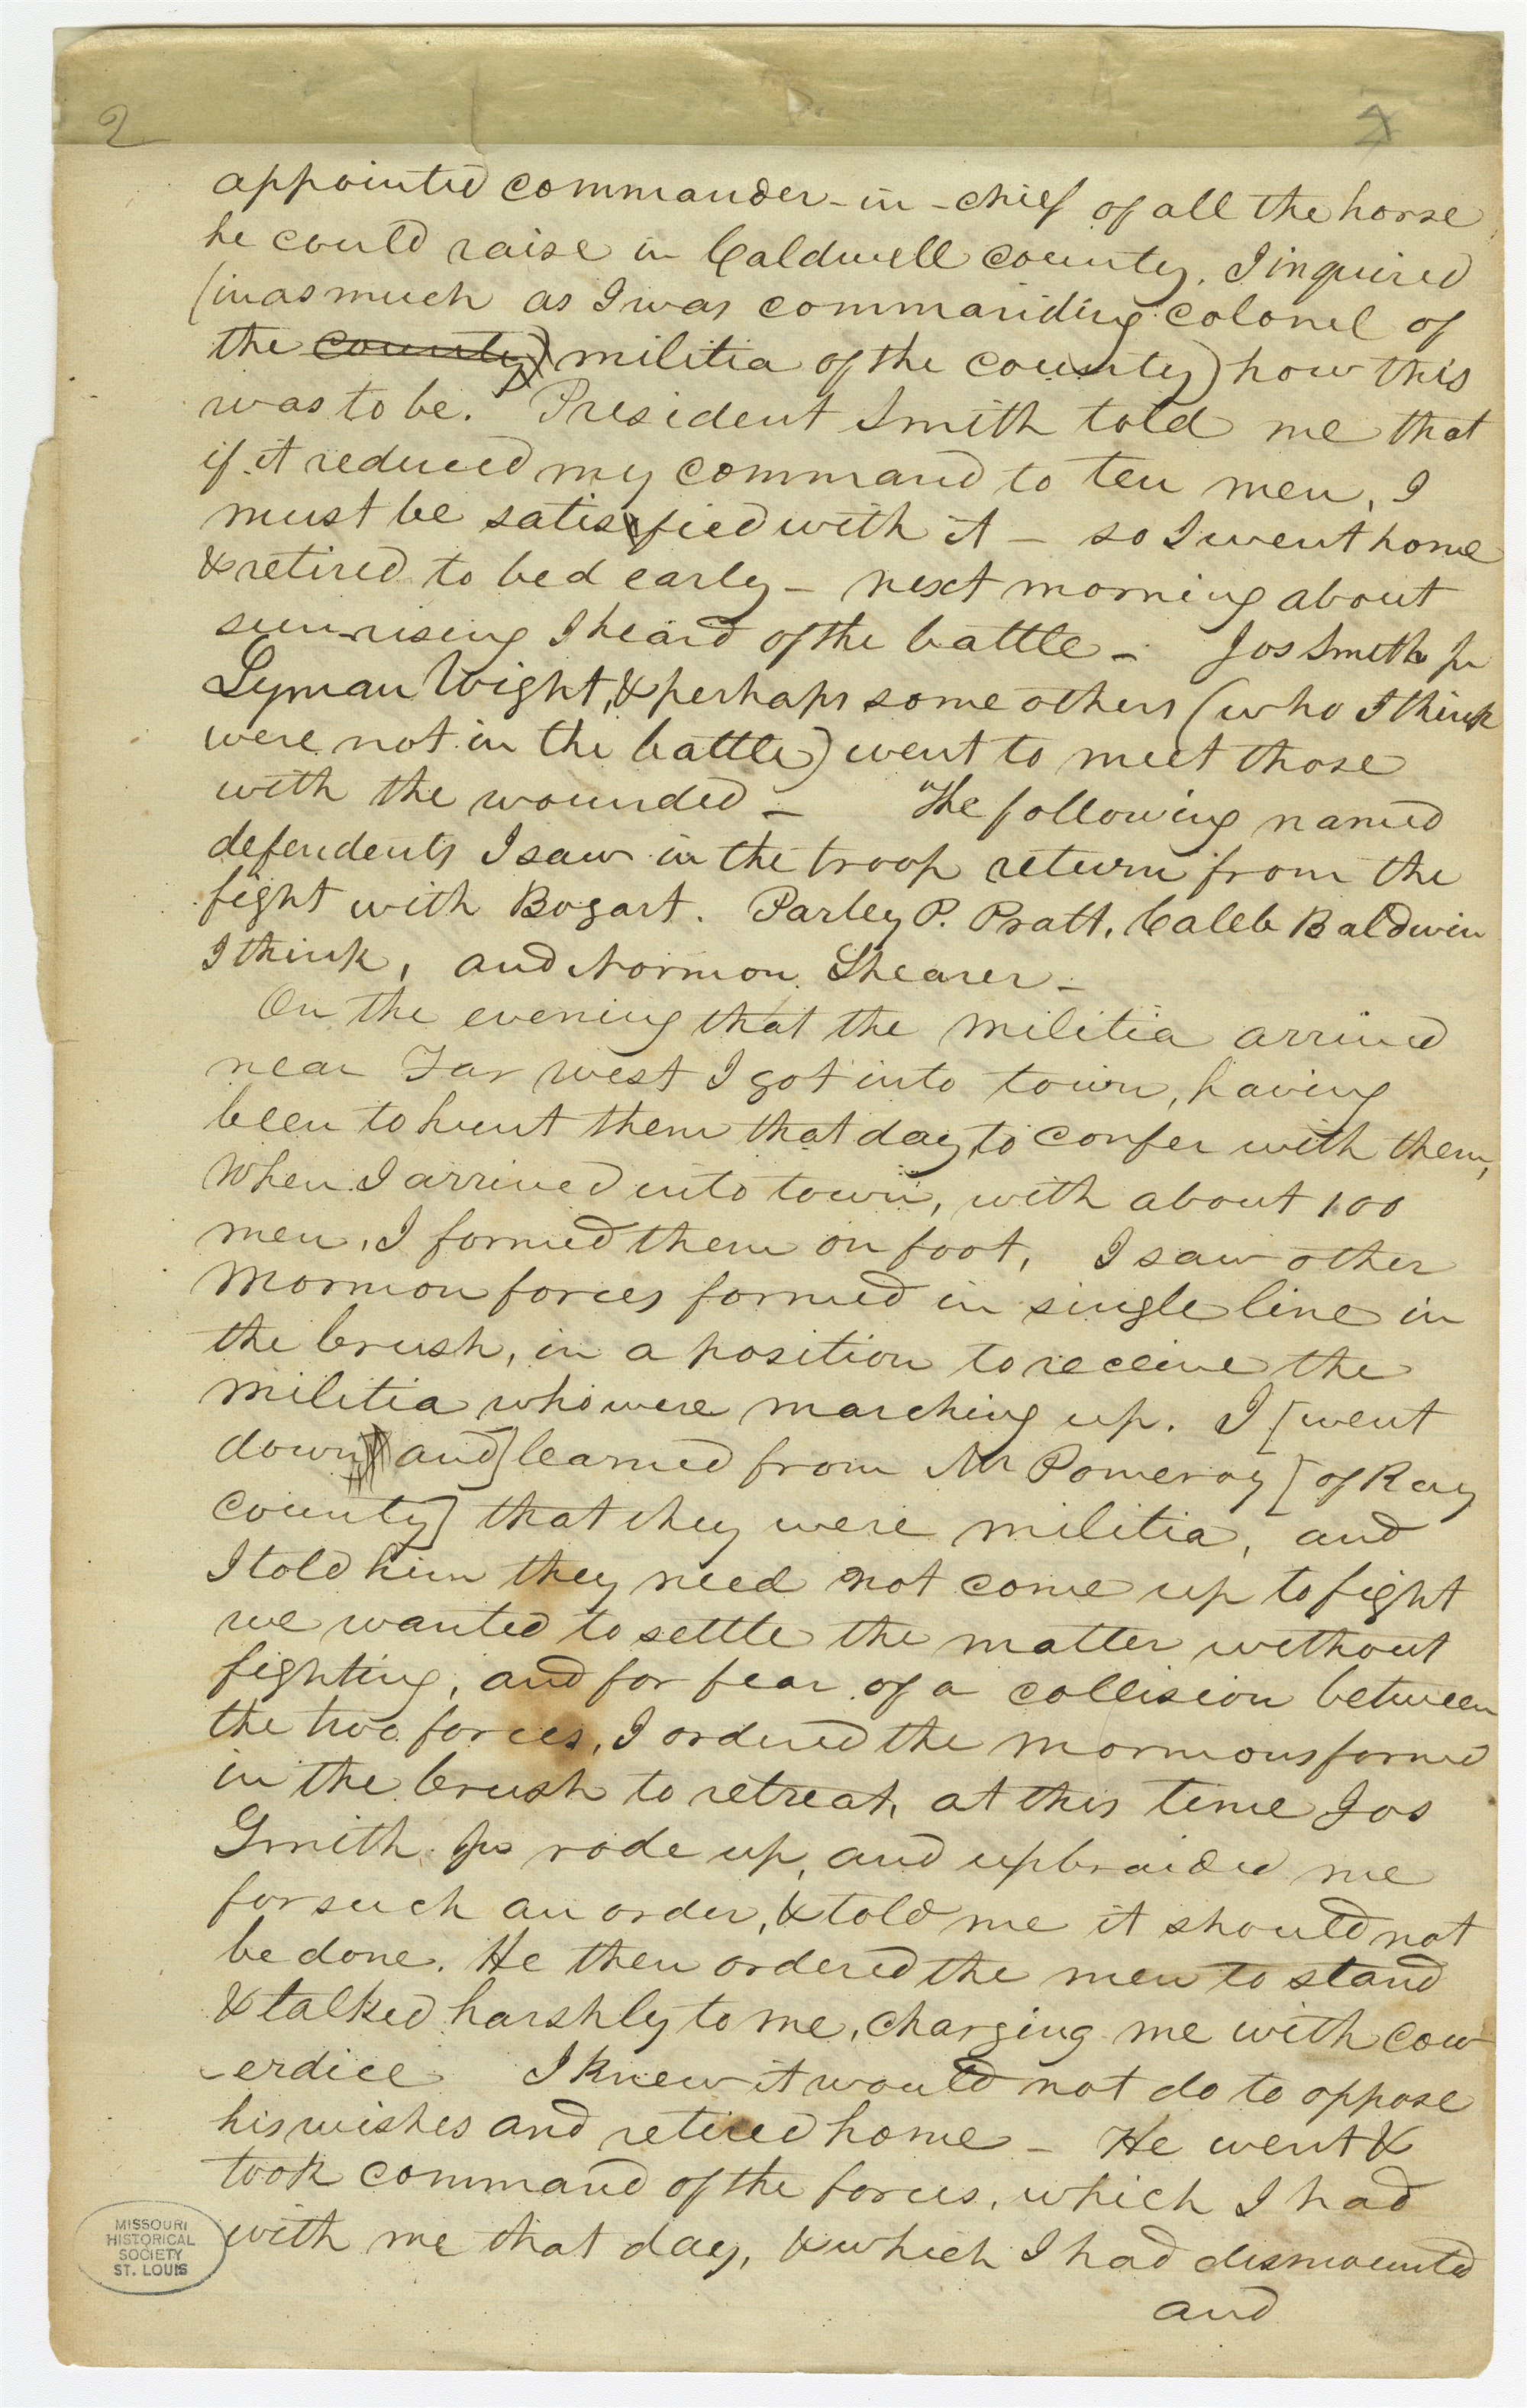 2
appointed commander-in-chief of all the horse
he could raise in Caldwell county. I inquired
(inasmuch as I was commanding colonel of
the county) militia of the county) how this
was to be. President Smith told me that
if it reduced my command to ten men, I
must be satisfied with it — so I went home
& retired to bed early — next morning about
sun-rising I heard of the battle — Jos Smith Jr
Lyman Wight, & perhaps some others (who I think
were not in the battle) went to meet those
with the wounded — The following named
defendents I saw in the troop return from the
fight with Bogart. Parley P. Pratt, Caleb Baldwin
I think, and Norman Shearer —
On the evening that the militia arrived
near Far west I got into town, having
been to hunt them that day to confer with them,
When I arrived into town, with about 100
men, I formed them on foot, I saw other
mormon forces formed in single line in
the brush, in a position to receive the
militia who were marching up. I [went
down and] learned from Mr Pomeroy [of Ray
county] that they were militia, and
I told him they need not come up to fight
we wanted to settle the matter without
fighting, and for fear of a collision between
the two forces, I ordered the mormons formed
in the brush to retreat, at this time Jos
Smith Jr rode up, and upbraided me
for such an order, & told me it should not
be done. He then ordered the men to stand
& talked harshly to me, charging me with cow
-erdice I knew it would not do to oppose
his wishes and retired home — He went &
took command of the forces, which I had
with me that day, & which I had dismounted
and
MISSOURI
HISTORICAL
SOCIETY
ST. LOUIS